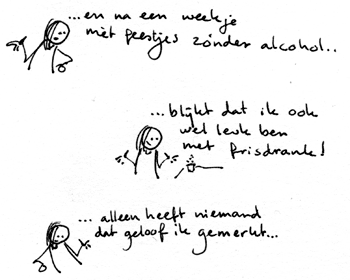 ...en na een weekje
met feestjes zónder alcohol..
...blijkt dat ik ook
wel leuk ben
met frisdrank!
... alleen heeft niemand
dat geloof ik gemerkt...